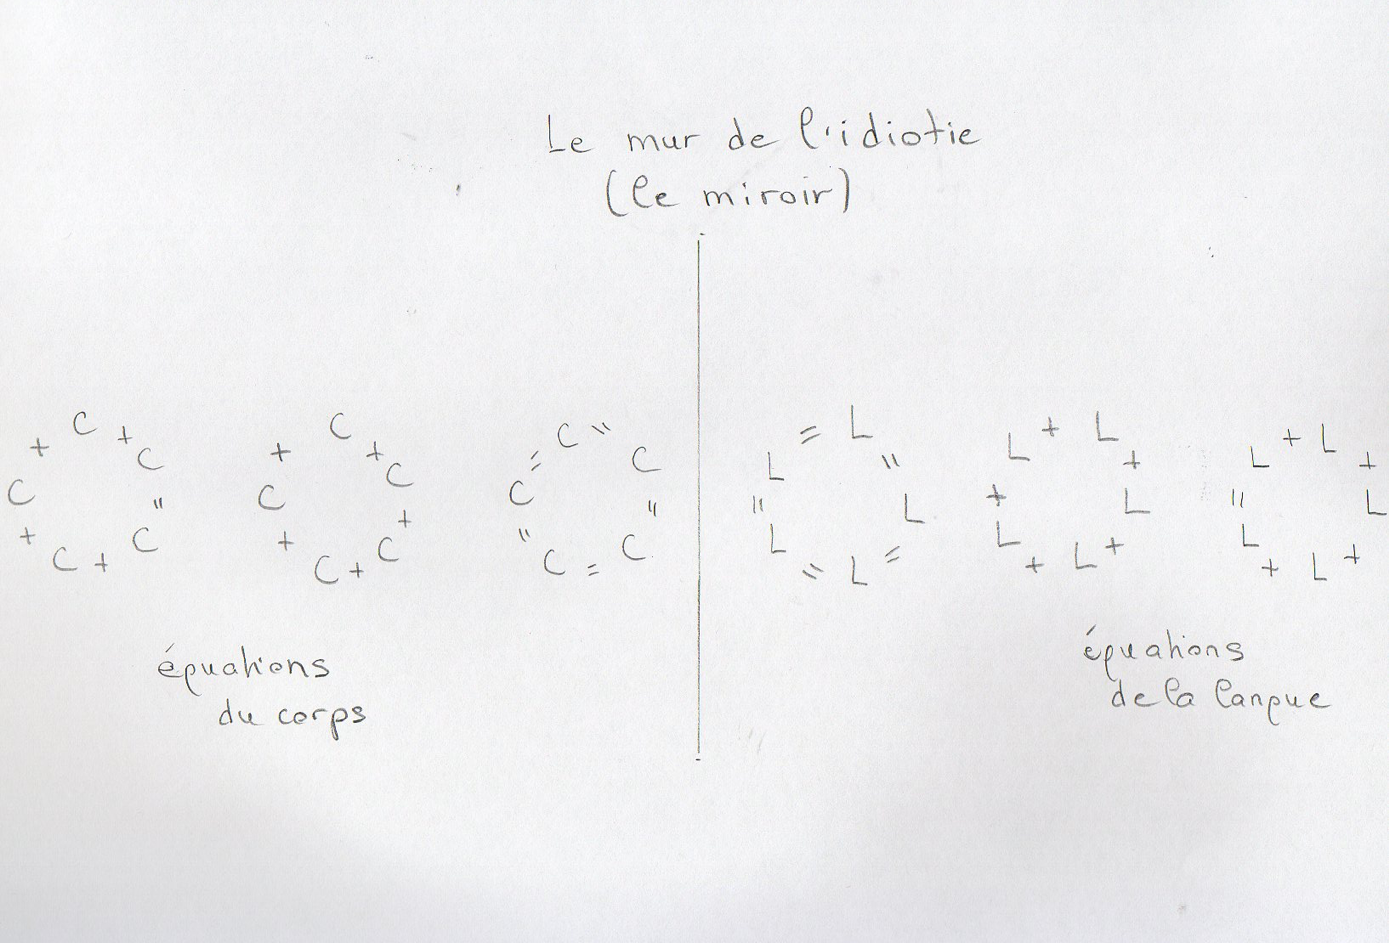 Le mur de l'idiotie
(le miroir)
C + C = C + C + C +
C + C + C + C + C +
C = C = C = C = C =
L = L = L = L = L =
L + L + L + L + L +
L + L + L + L + L =
équations
du corps
équations
de la langue